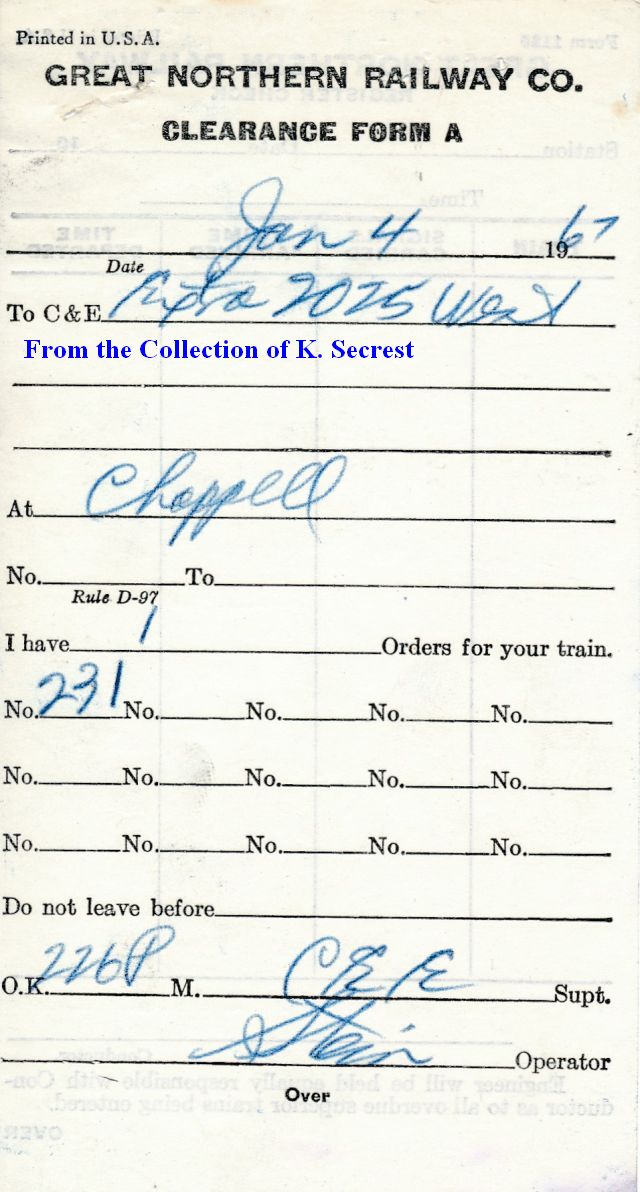 Printed in U.S.A.
GREAT NORTHERN RAILWAY CO.
CLEARANCE FORM A
Jan 4 1967
Date
To C & E Extra 2025 West
From the Collection of K. Secrest
At Chappell
No. To
Rule D-97
I have 1 Orders for your train.
No. 231 No. No. No. No.
No. No. No. No. No.
No. No. No. No. No.
Do not leave before
O.K. 226P M. CEE Supt.
Stein Operator
Over